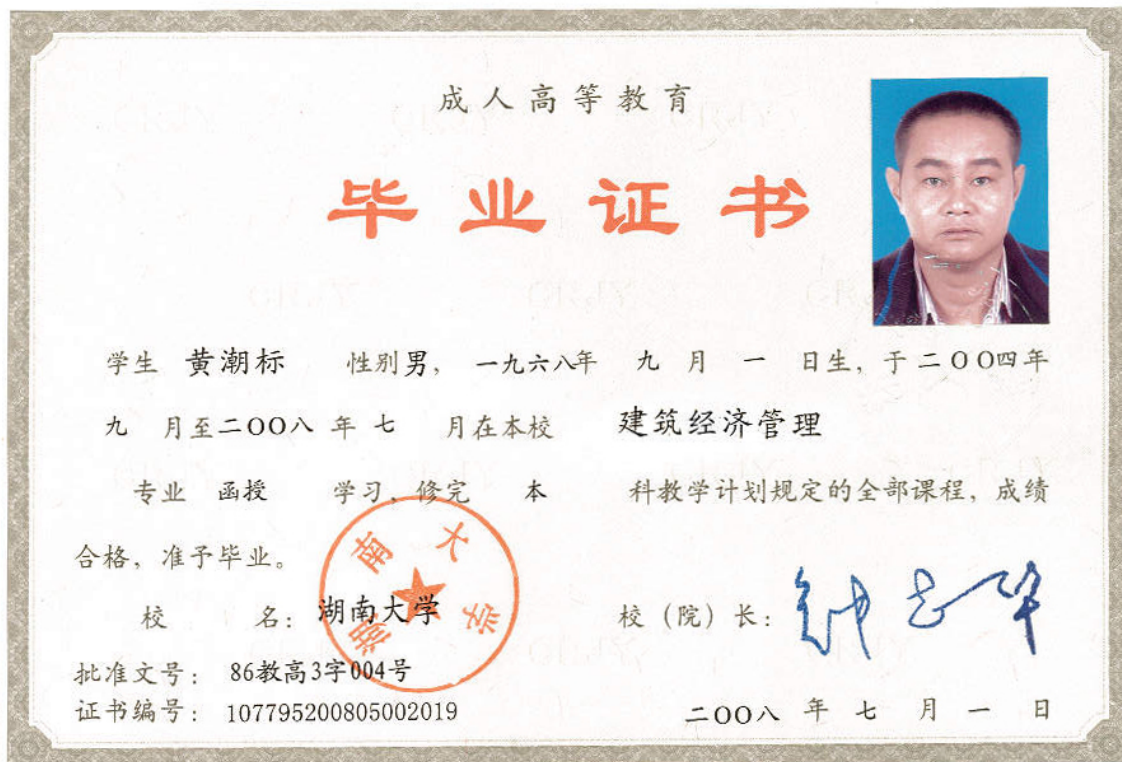 成人高等教育
毕业证书
学生 黄潮标 性别男，一九六八年 九 月 一 日生，于二OO四年
九 月至二OO八 年 七 月在本校 建筑经济管理
专业 函授 学习，修完 本 科教学计划规定的全部课程，成绩
合格，准予毕业。
校 名：湖南大学 校（院）长：钟志华
湖南大学
批准文号： 86教高3字004号
证书编号： 107795200805002019
二OO八 年 七 月 一 日